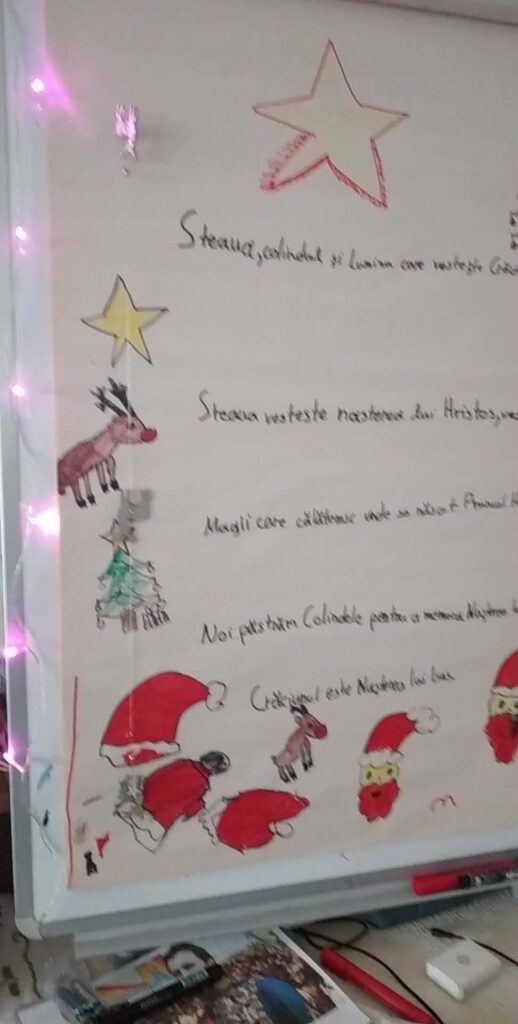 Steaua, colindul și Lumina care vestește
Steaua vestește nașterea lui Hristos,
Magii care călătoresc unde sa născut
Noi păstrăm Colindele pentru a memora Nașterea
Crăciunul este Nașterea lui Isus.